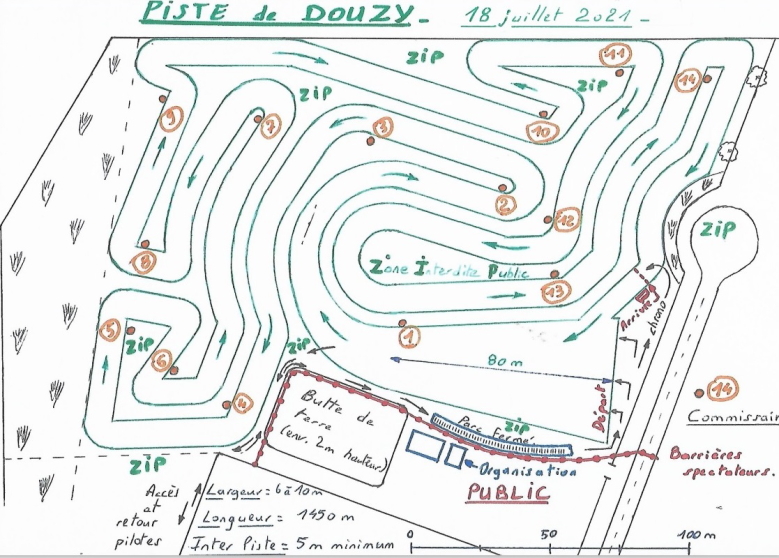 PISTE de DOUZY_ 18 juillet 2021_
ZIP
11
ZIP
14
ZIP
9
7
3
10
2
12
ZIP
8
Zone Interdite Public
13
Arrivée
chrono
5
ZIP
6
1
ZIP
80 m
4
Butte de
terre
(env. 2m hauteur)
Départ
14
Commissair
ZIP
Parc Fermé
ZIP
Organisation
Barrières
spectateurs.
PUBLIC
Accès
et
retour
pilotes
Largeur = 6 à 10m
Longueur = 1450 m
Inter Piste = 5m minimum
0 50 100 m